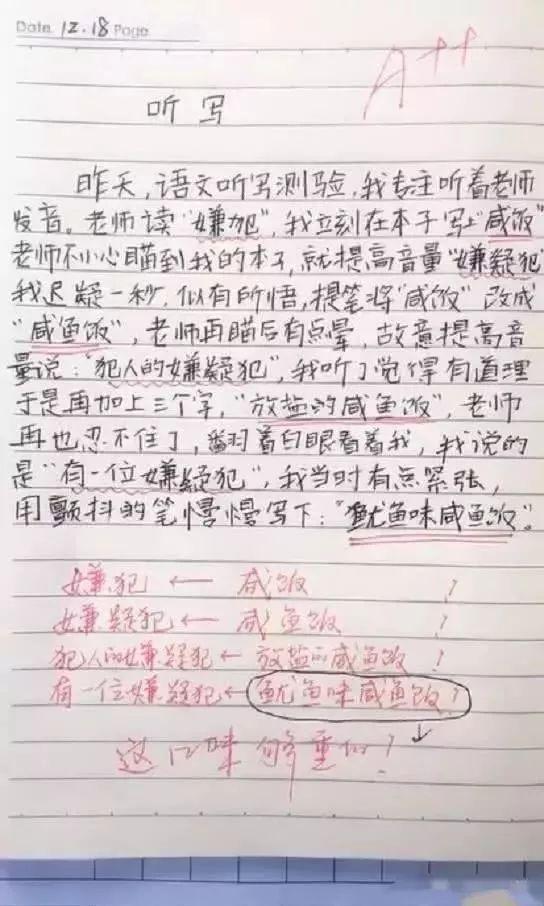 Date. 12.18 Page
A++
听写
昨天,语文听写测验,我专注听着老师
发音。老师读"嫌犯",我立刻在本子写上"咸饭"
老师不小心瞄到我的本子,就提高音量"嫌疑犯"
我迟疑一秒,似有所悟,提笔将"咸饭"改成
"咸鱼饭",老师再瞄后有点晕,故意提高音
量说:"犯人的嫌疑犯",我听了觉得有道理
于是再加上三个字,"放盐的咸鱼饭",老师
再也忍不住了,翻着白眼看着我,我说的
是"有一位嫌疑犯",我当时有点紧张,
用颤抖的笔慢慢写下:"鱿鱼味咸鱼饭"。
嫌犯 ← 咸饭 !
嫌疑犯 ← 咸鱼饭 !
犯人的嫌疑犯 ← 放盐的咸鱼饭 !
有一位嫌疑犯 ← 鱿鱼味咸鱼饭!
这口味够重的!